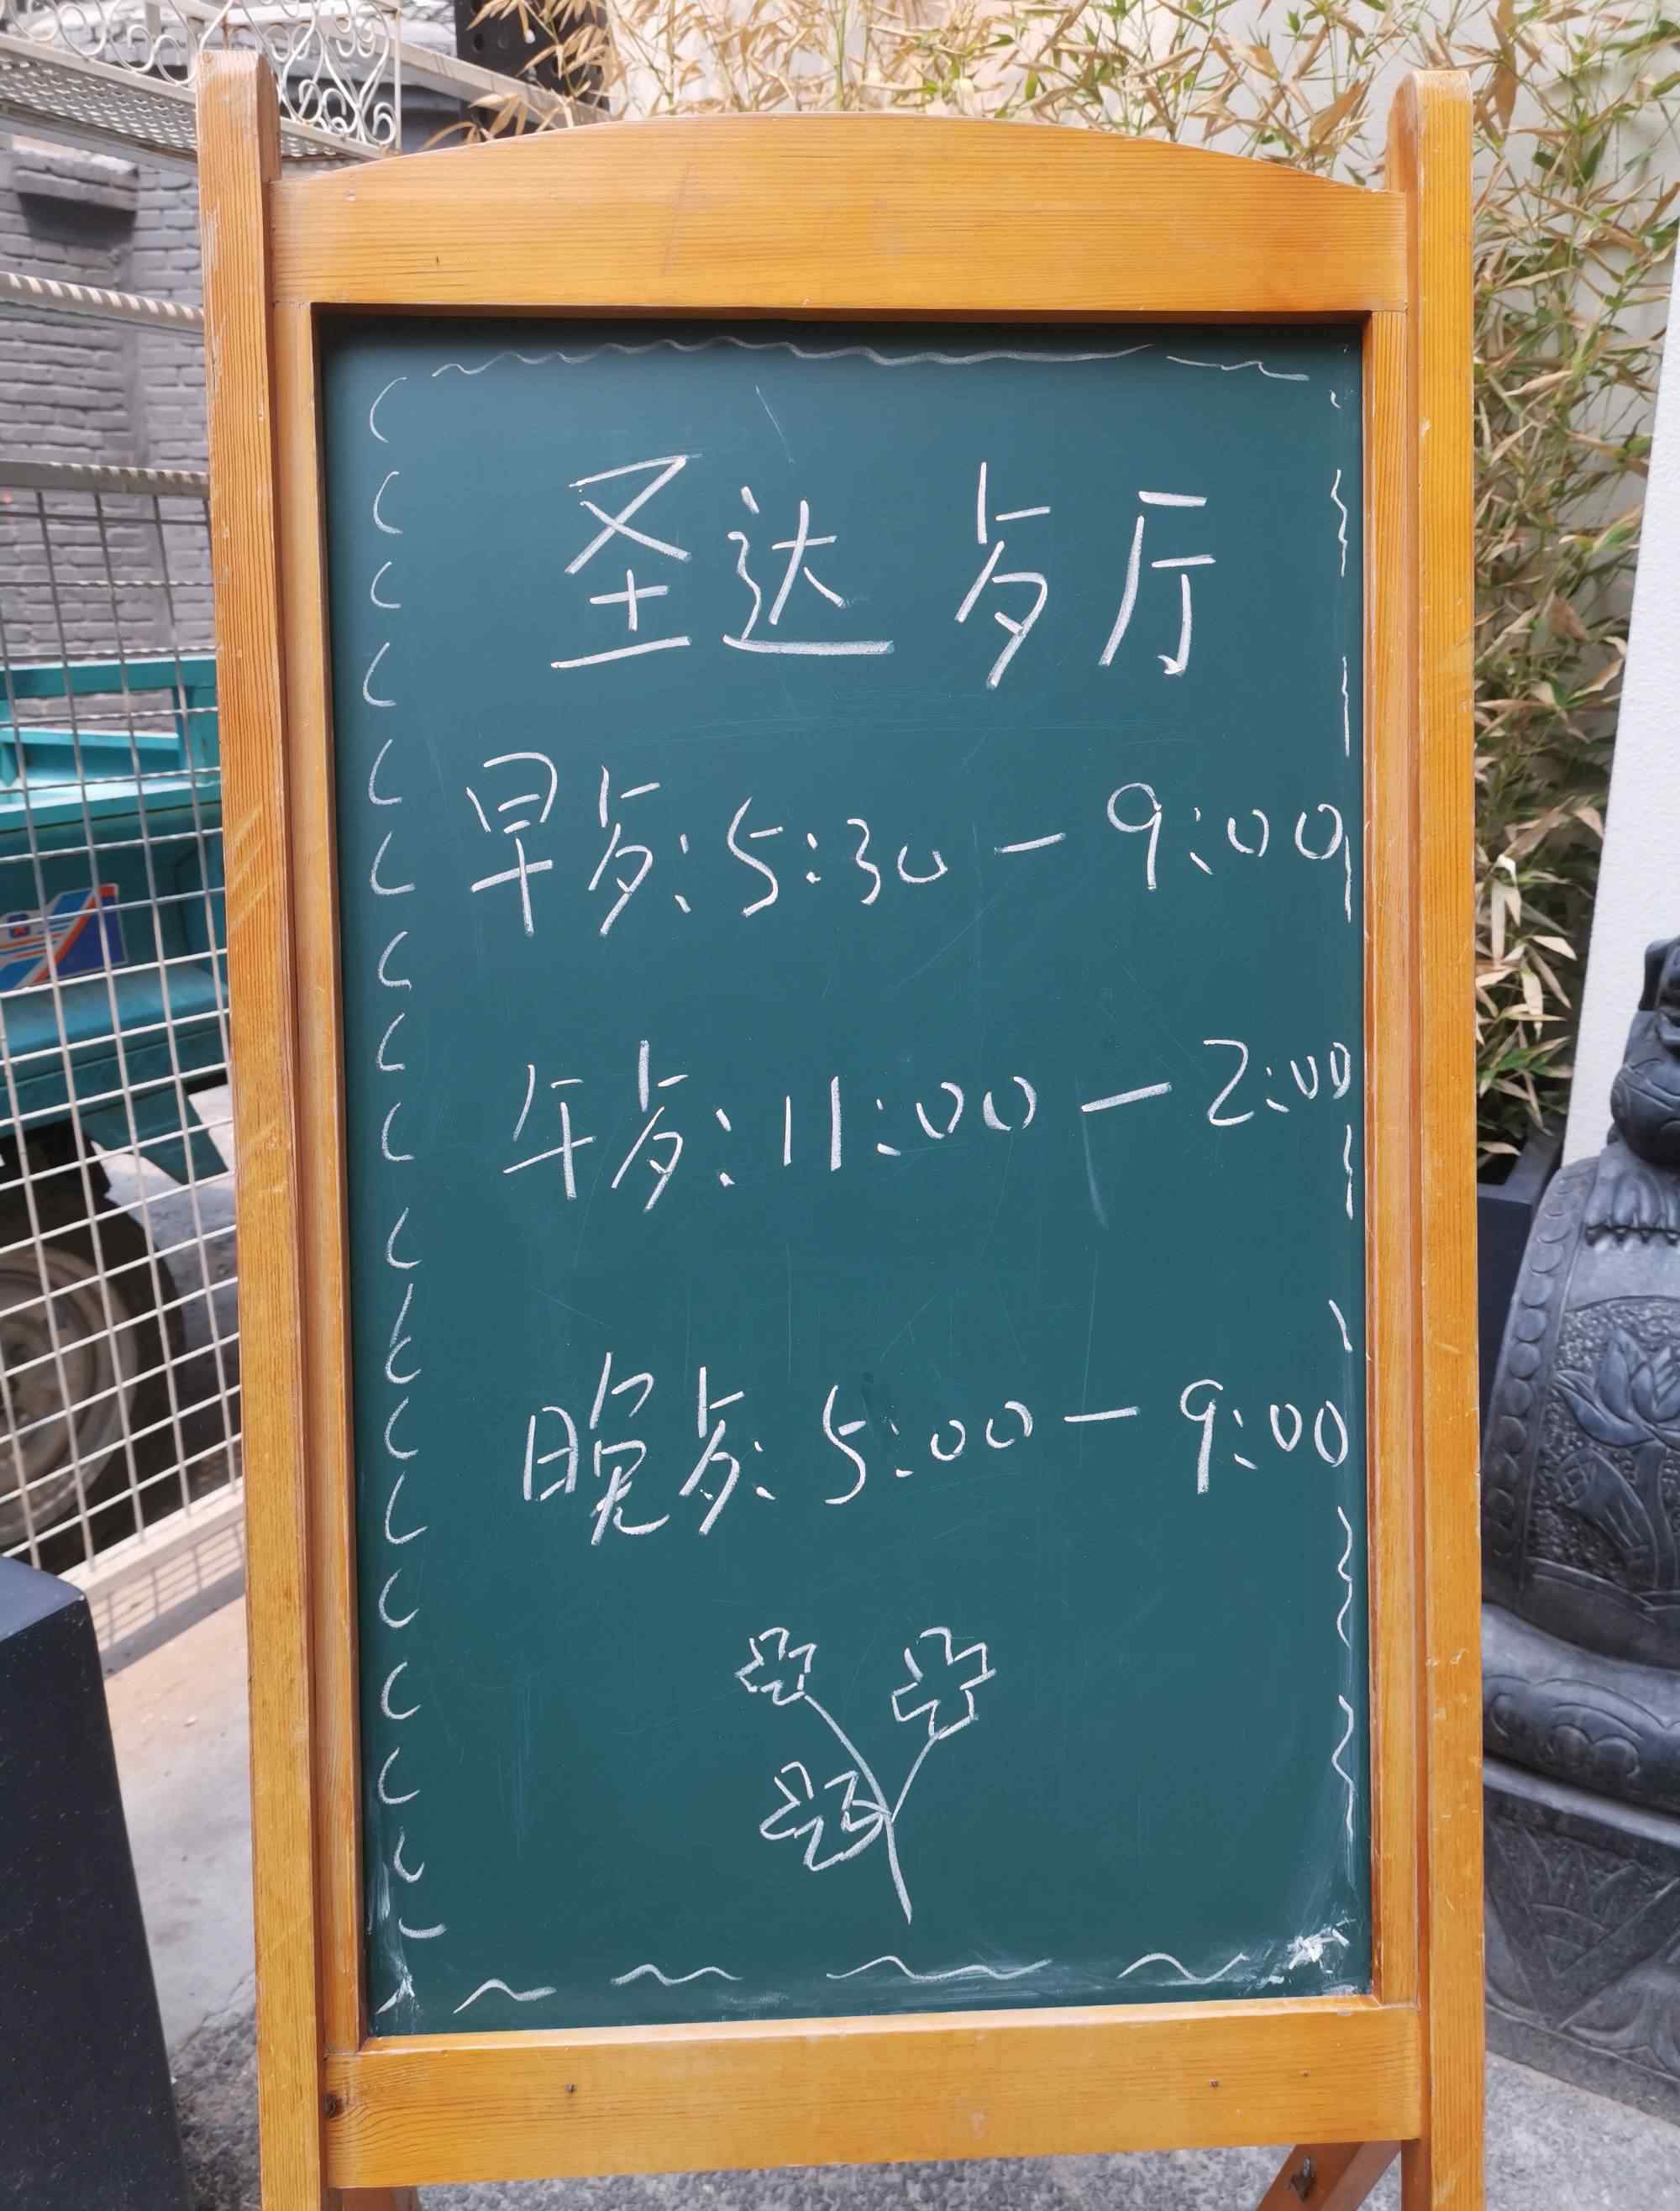 圣达歺厅
早歺:5:30-9:00
午歺:11:00-2:00
晚歺:5:00-9:00